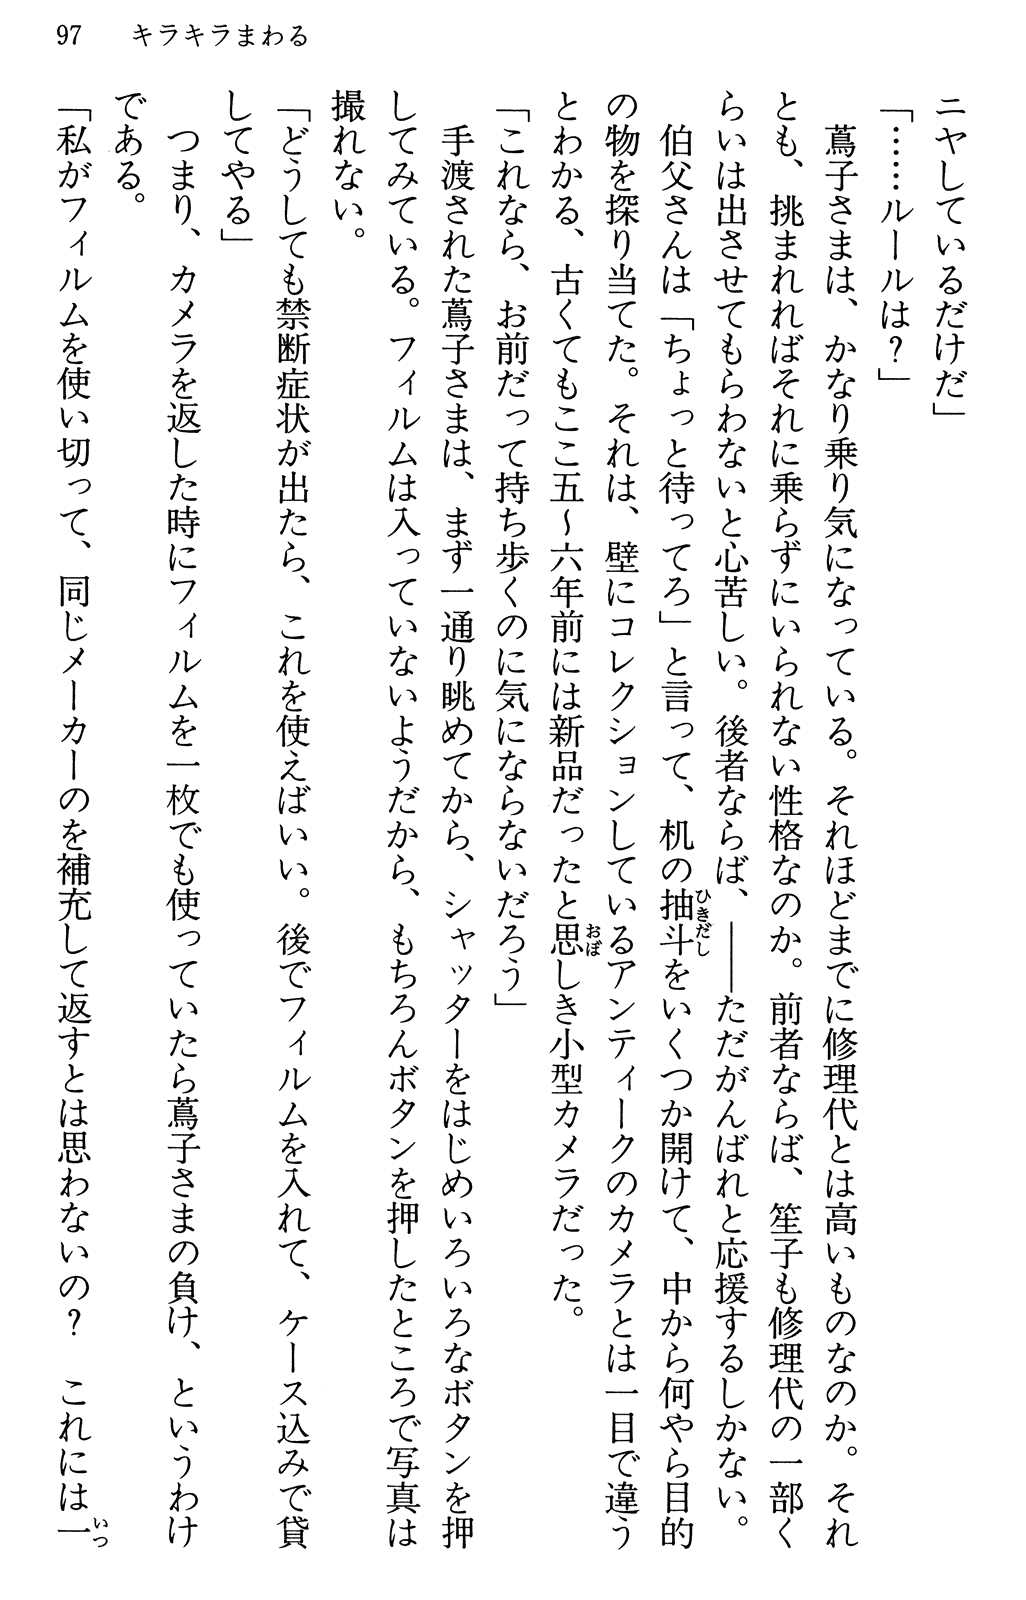 97　キラキラまわる
ニヤしているだけだ」
「……ルールは？」
　蔦子さまは、かなり乗り気になっている。それほどまでに修理代とは高いものなのか。それ
とも、挑まれればそれに乗らずにいられない性格なのか。前者ならば、笙子も修理代の一部く
らいは出させてもらわないと心苦しい。後者ならば、――ただがんばれと応援するしかない。
　伯父さんは「ちょっと待ってろ」と言って、机の抽斗をいくつか開けて、中から何やら目的
の物を探り当てた。それは、壁にコレクションしているアンティークのカメラとは一目で違う
とわかる、古くてもここ五～六年前には新品だったと思しき小型カメラだった。
「これなら、お前だって持ち歩くのに気にならないだろう」
　手渡された蔦子さまは、まず一通り眺めてから、シャッターをはじめいろいろなボタンを押
してみている。フィルムは入っていないようだから、もちろんボタンを押したところで写真は
撮れない。
「どうしても禁断症状が出たら、これを使えばいい。後でフィルムを入れて、ケース込みで貸
してやる」
　つまり、カメラを返した時にフィルムを一枚でも使っていたら蔦子さまの負け、というわけ
である。
「私がフィルムを使い切って、同じメーカーのを補充して返すとは思わないの？　これには一
ひきだし
おぼ
いつ